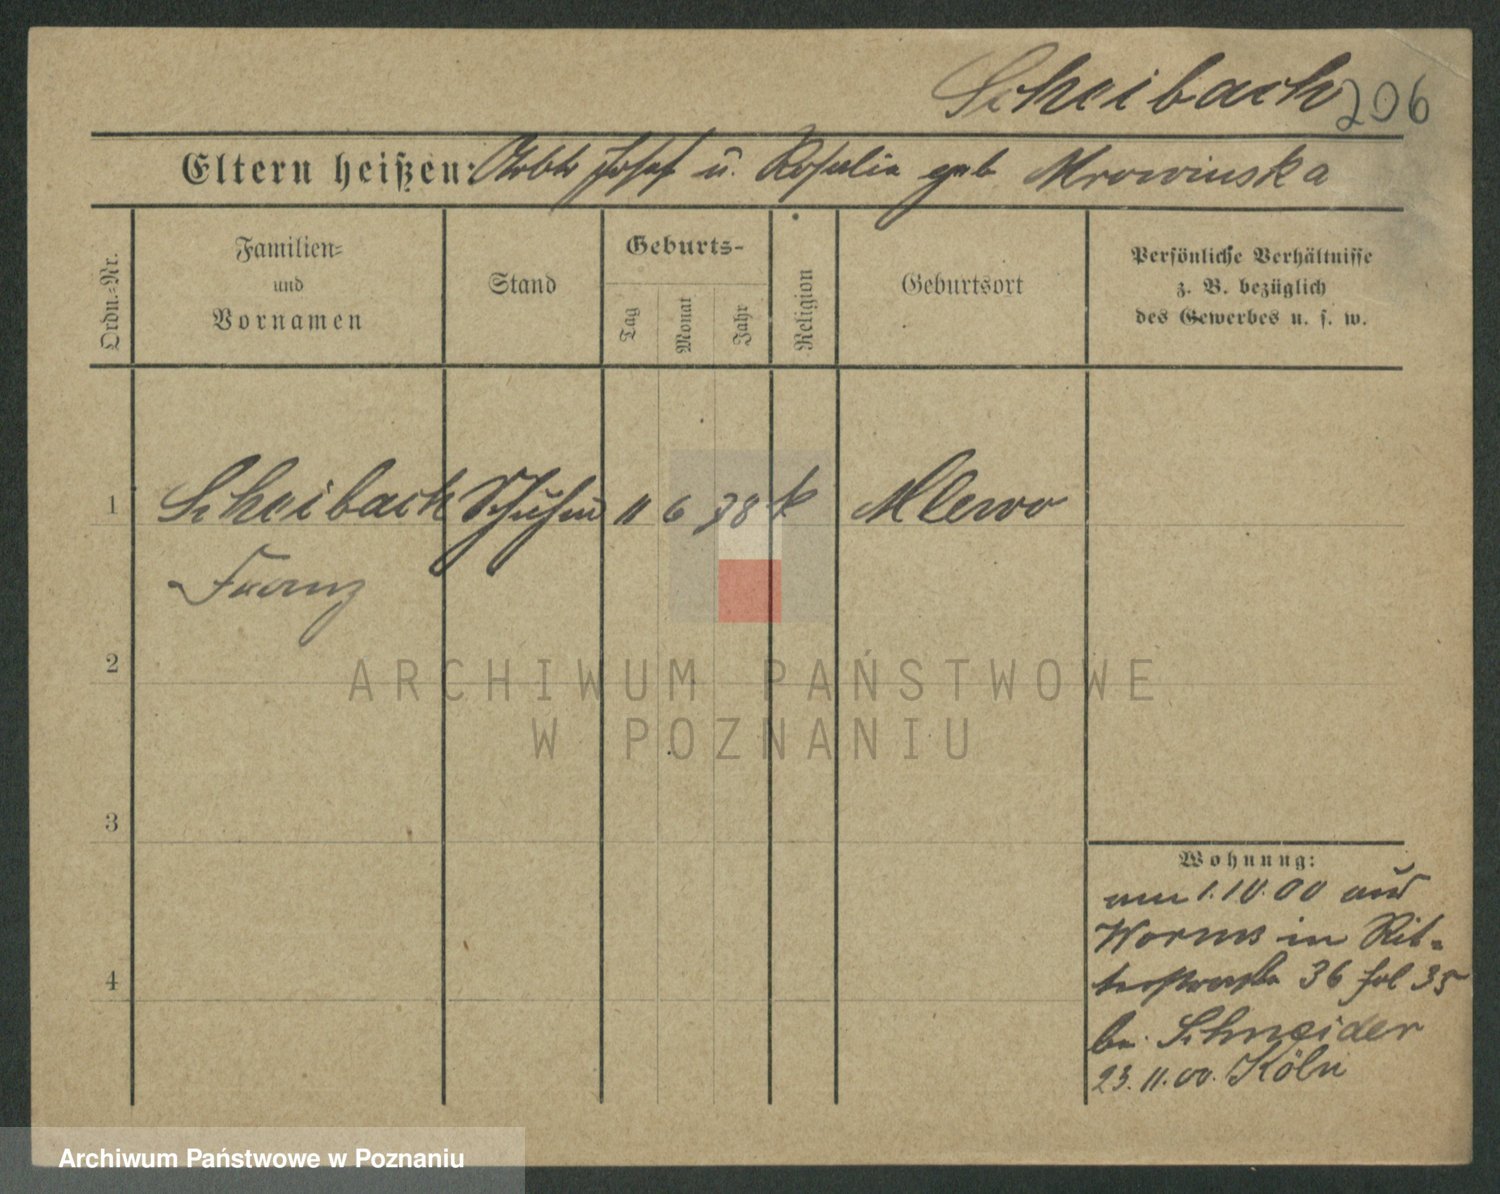 Scheibach 206
Eltern heißen: Arbtr Josef u. Rosalia geb Mrowinska
Ordn.-Nr.
Familien-
und
Vornamen
Stand
Geburts-
Tag
Monat
Jahr
Religion
Geburtsort
Persönliche Verhältnisse
z. B. bezüglich
des Gewerbes u. s. w.
1 Scheibach 11 6 78 k Mlewo
Franz
2
ARCHIWUM PAŃSTWOWE
W POZNANIU
3
4
Wohnung:
am 1.10.00 aus
Worms in Rit-
terstraße 36 fol 35
bei Schneider
23.11.00. Köln
Archiwum Państwowe w Poznaniu